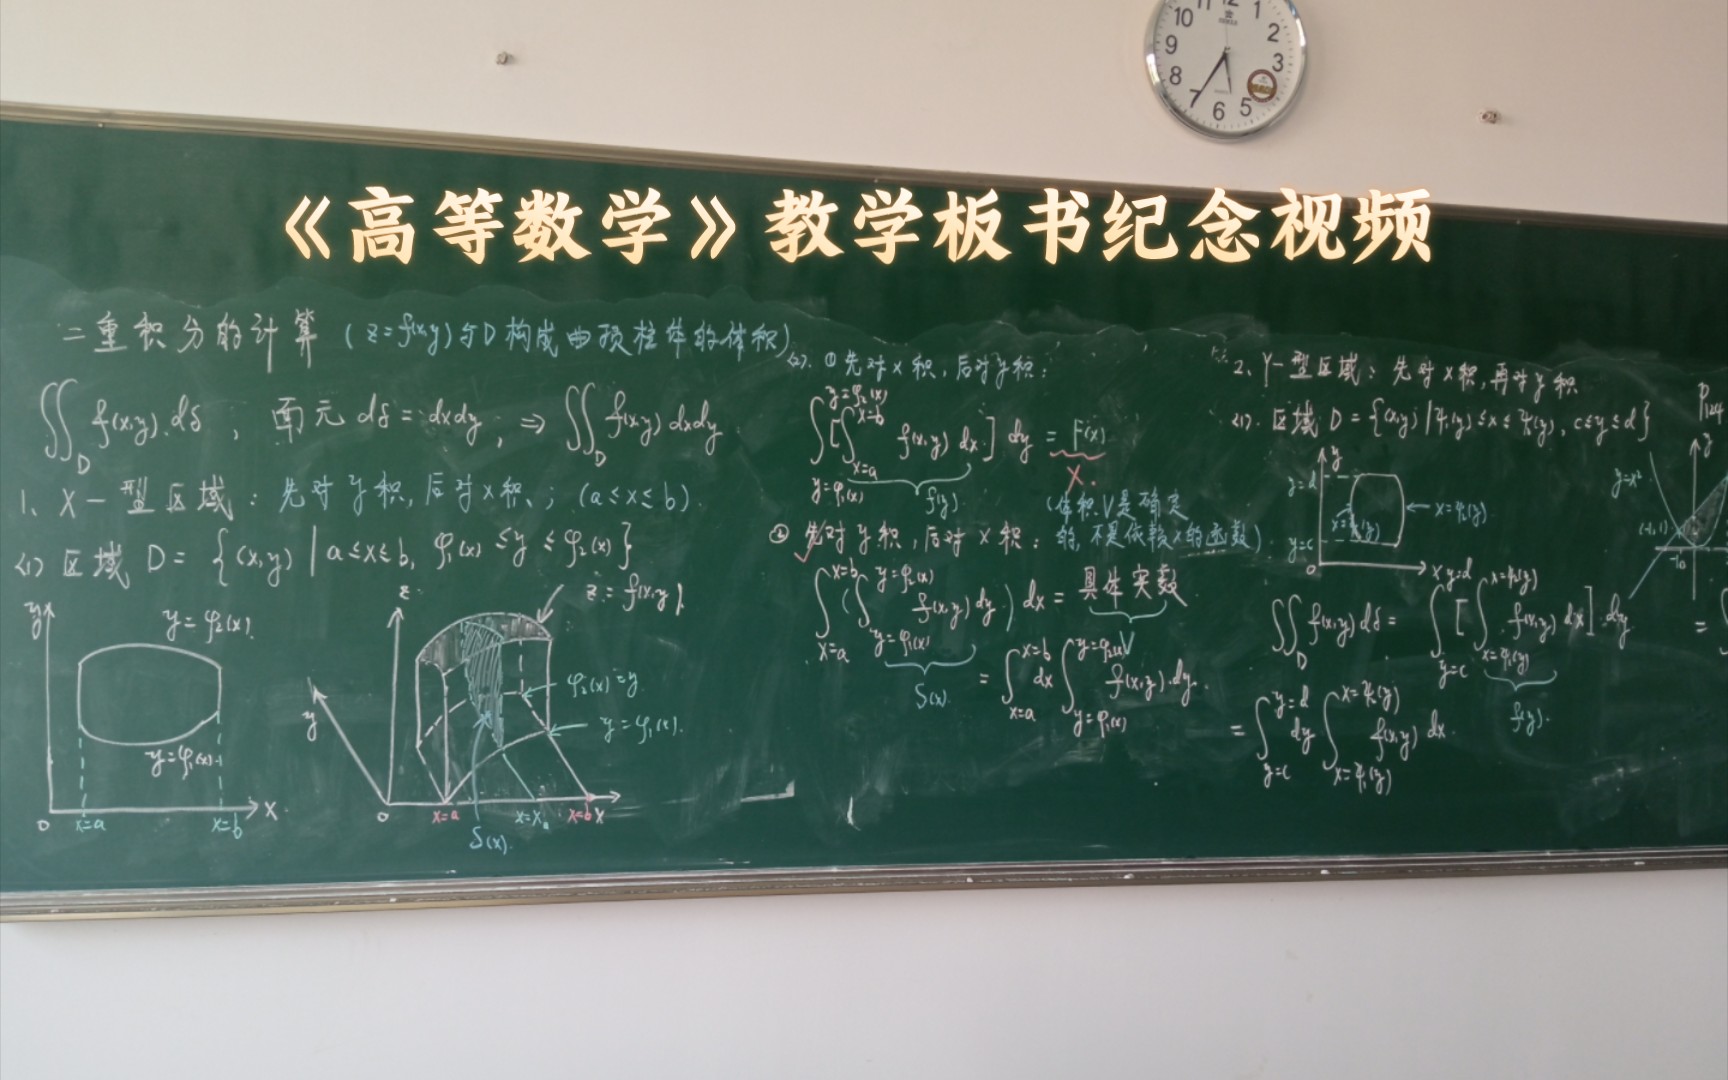 《高等数学》教学板书纪念视频
10 11 12 1
9 2
8 3
7 6 5
二重积分的计算 (z=f(x,y)与D构成曲顶柱体的体积)
∬_D f(x,y) dδ, 面元 dδ = dxdy, ⇒ ∬_D f(x,y) dxdy
1、X-型区域: 先对y积, 后对x积; (a≤x≤b).
(1) 区域 D = {(x,y) | a≤x≤b, φ₁(x)≤y≤φ₂(x)}
y
y=φ₂(x).
y=φ₁(x).
0 x=a x=b x
z
z=f(x,y).
y
φ₂(x)=y.
y=φ₁(x).
0 x=a x=x₀ x=b x
S(x).
(2). ①先对x积, 后对y积:
∫_{y=φ₁(x)}^{y=φ₂(x)} [∫_{x=a}^{x=b} f(x,y) dx.] dy = F(x)
f(y). X.
(体积V是确定
的, 不是依赖x的函数)
②先对y积, 后对x积:
∫_{x=a}^{x=b} (∫_{y=φ₁(x)}^{y=φ₂(x)} f(x,y) dy) dx = 具体实数
S(x). V
= ∫_{x=a}^{x=b} dx ∫_{y=φ₁(x)}^{y=φ₂(x)} f(x,y) dy.
2、Y-型区域: 先对x积, 再对y积
(1). 区域 D = {(x,y) | ψ₁(y)≤x≤ψ₂(y), c≤y≤d}
y
y=d
x=ψ₁(y) x=ψ₂(y)
y=c
0 x
∬_D f(x,y) dδ = ∫_{y=c}^{y=d} [∫_{x=ψ₁(y)}^{x=ψ₂(y)} f(x,y) dx] dy
f(y).
= ∫_{y=c}^{y=d} dy ∫_{x=ψ₁(y)}^{x=ψ₂(y)} f(x,y) dx.
y
y=x²
(-1,1)
-1 0
=